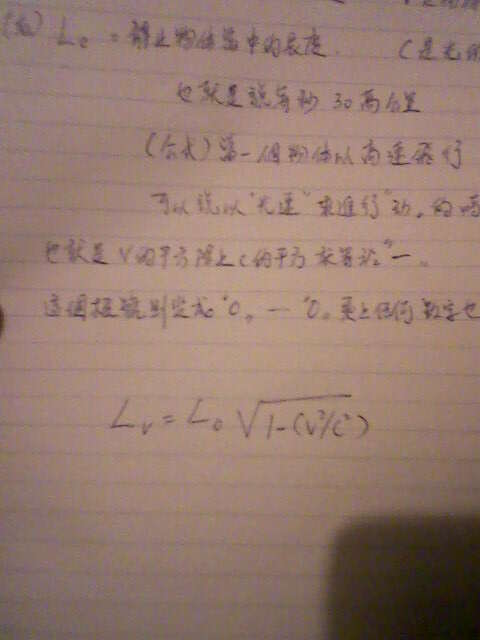 L₀ = 靜止物體當中的長度. (是光的
也就是說每秒 30 萬公里
(公式) 當一個物体以高速飛行
可以說以"光速"來進行
也就是 V的平方除上C的平方 來等於"一。
這個根號則變成"0。 "0。 乘上任何數字也
Lv = L₀ √1-(v²/c²)